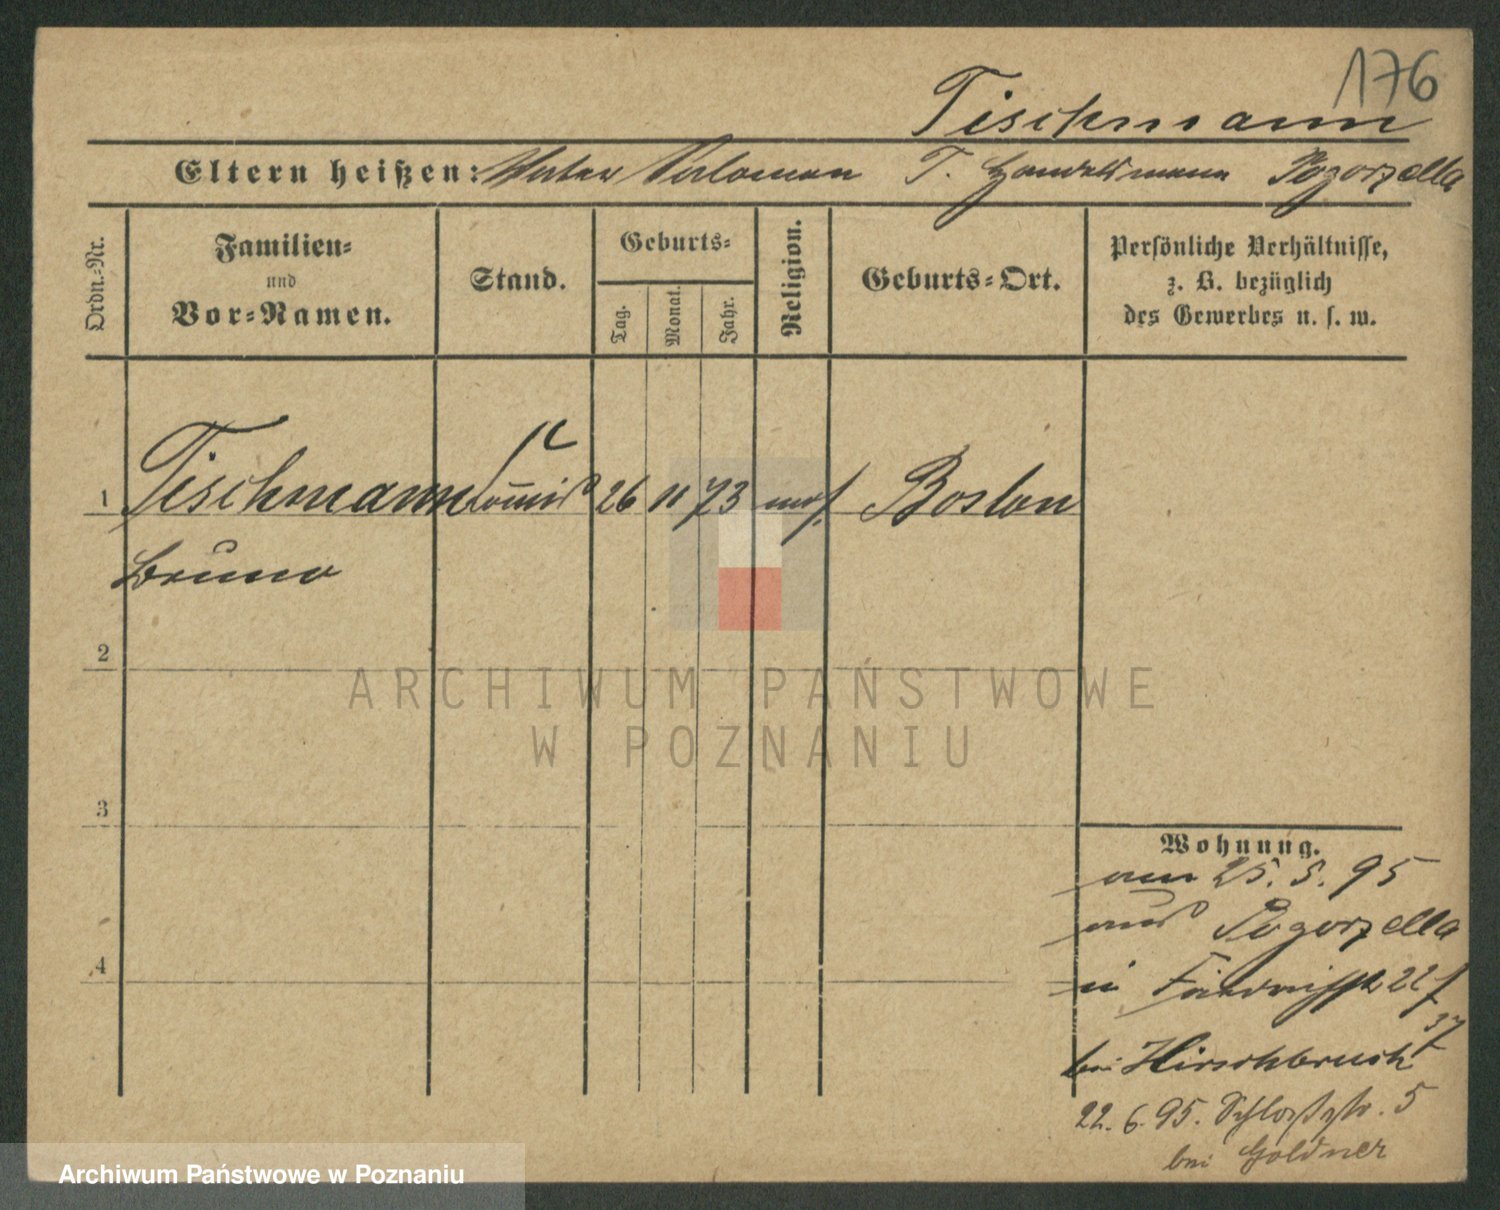 176
Tischmann
Eltern heißen: Vater Salomon T. Handelsmann Pogorzella
Ordn.-Nr.
Familien-
und
Vor-Namen.
Stand.
Geburts-
Tag.
Monat.
Jahr.
Religion.
Geburts-Ort.
Persönliche Verhältnisse,
z. B. bezüglich
des Gewerbes u. s. w.
1 Tischmann Commis 26 11 73 mos. Boston
Bruno
2
3
4
Wohnung.
am 25. 5. 95
aus Pogorzella
in 22
37
bei Hirschbruch
22. 6. 95. Schloßstr. 5
bei Goldner
ARCHIWUM PAŃSTWOWE
W POZNANIU
Archiwum Państwowe w Poznaniu